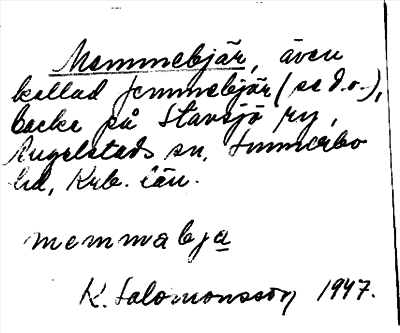 Memmebjär, även
kallad Jemmebjär (se d.o.),
backe på Stavsjö ry,
Angelstads sn, Sunnerbo
hd, Krb. län.
memmabja
K. Salomonsson 1947.